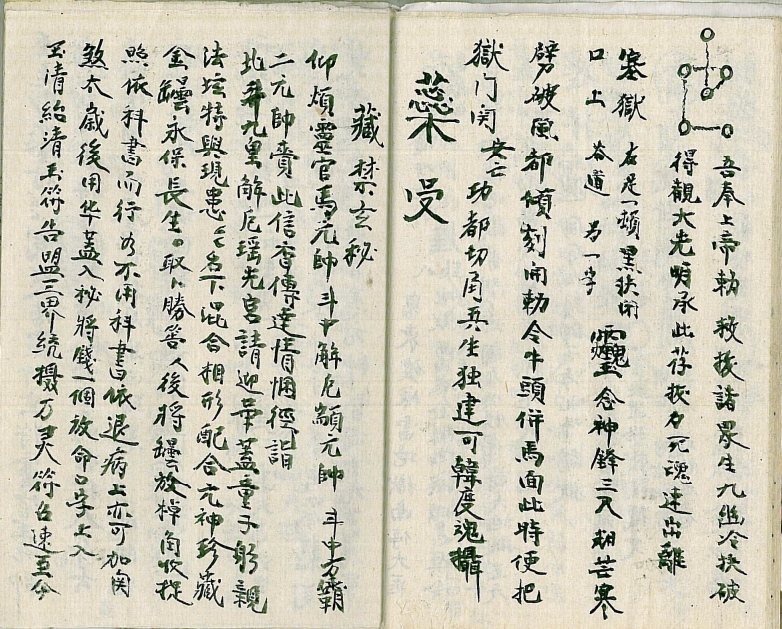 吾奉上帝勅救拔諸眾生九幽冷抉破
得覩大光明承此符拔力死魂速出離
塞獄 右足一頓 黑獄開
口上 谷道 另一字 靈 念神鋒三尺 寒
劈破風都頃刻開勅令牛頭併馬面此時便把
獄门関 功都切角再生独建可韓度魂攝
藥 受
藏禁玄秘
仰煩靈官馬元帥斗中解厄顓元帥 斗中方霸
二元帥賫此信香傳達情悃徑詣
北斗九皇解厄瑤光宮請迎華蓋童子躬親
法壇特與現患厶名下混合相形配合元神珍藏
金罎永保長生取卜勝筶人後將罎放棹角收捉
照依科書而行如不用科書依退病上亦可加関
煞太歲後用华蓋入秘將錢一個放命口字上入
玉清給清玉符告盟三界統攝万灵符召速至令